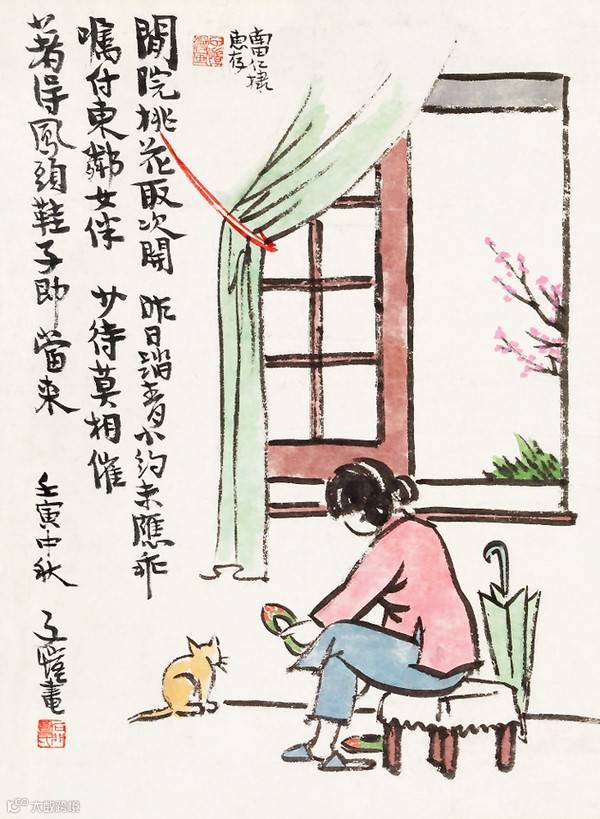 仁棣
惠存
閒院桃花取次開 昨日踏青小約未應乖
嘱付東鄰女伴 少待莫相催
著得鳳頭鞋子即當來
壬寅中秋 子愷畫